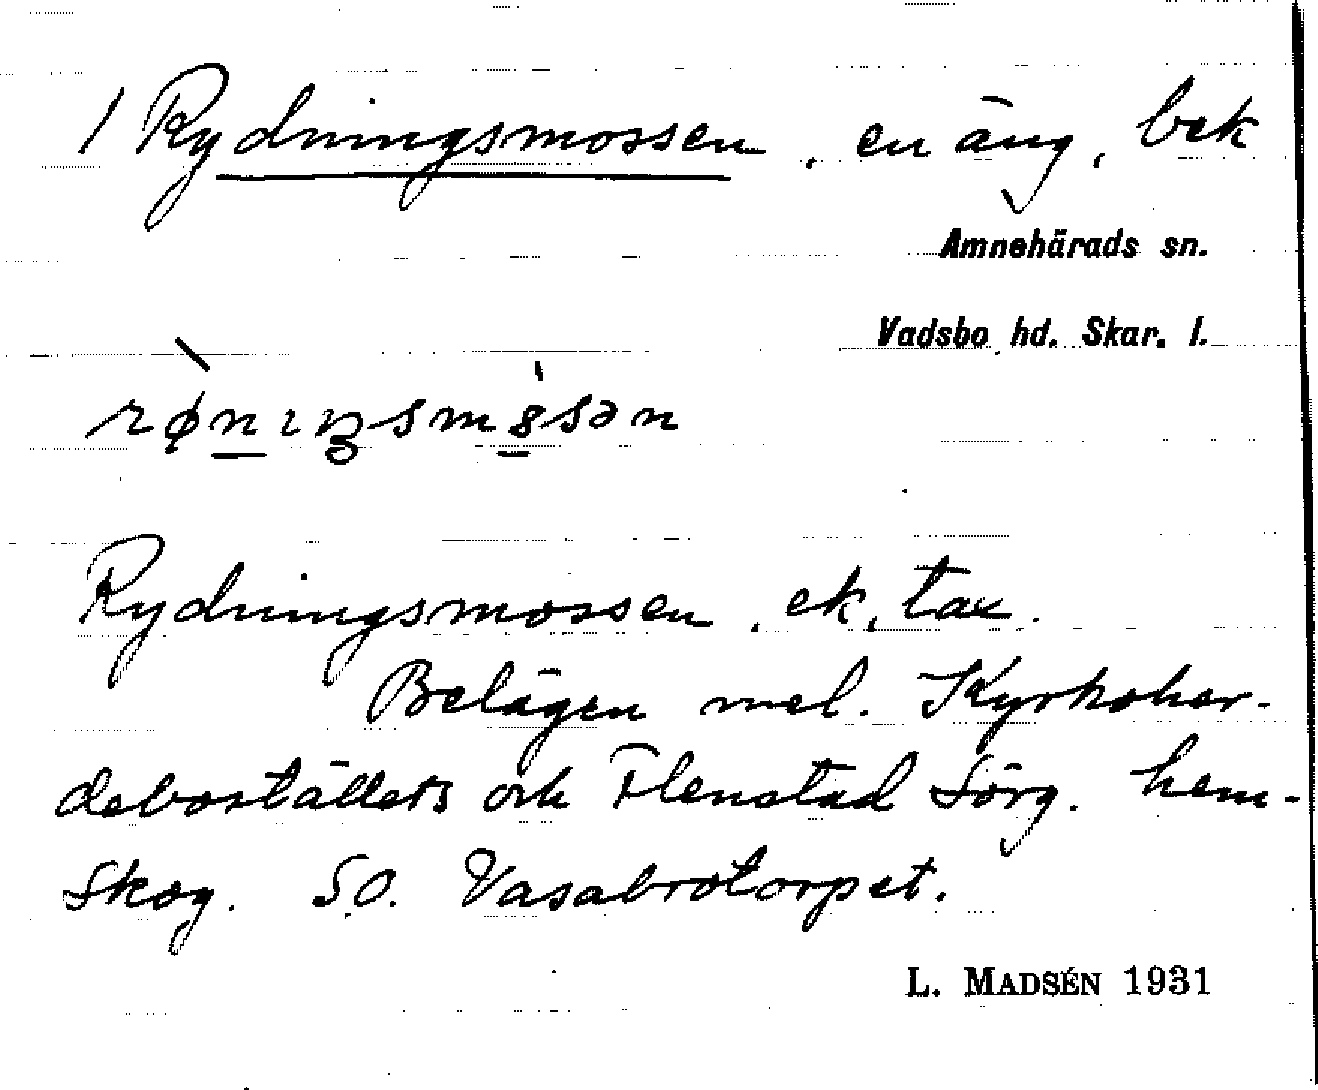 1 Rydningsmossen, en äng, bek
Amnehärads sn.
Vadsbo hd. Skar. l.
Rydningsmossen, ek, tax.
Belägen mel. Kyrkoher-
debostället och Flenstad Sörg. hem-
skog. SO. Vasabrotorpet.
L. MADSÉN 1931